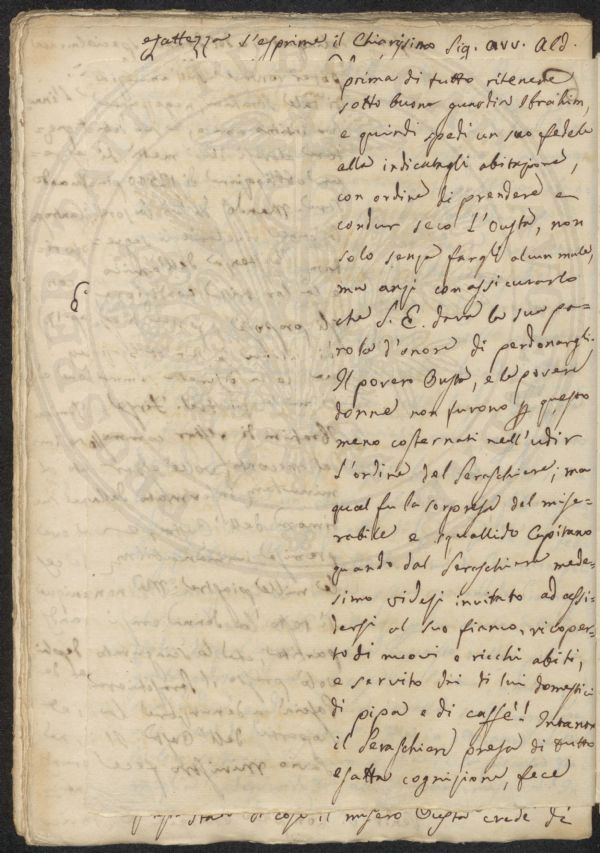 esattezza s'esprime il Chiarissimo Sig. avv. Ald.
prima di tutto ritenere
sotto buona guardia Ibrahim,
e quindi spedì un suo fedele
alla indicatagli abitazione,
con ordine di prendere e
condur seco l'Ousta, non
solo senza fargli alcun male,
ma anzi con assicurarlo
6°
che S. E. dava la sua pa=
rola d'onore di perdonargli.
Il povero Ousta, e le povere
donne non furono per questo
meno costernati nell'udir
l'ordine del Seraschiere; ma
qual fu la sorpresa del mise=
rabile e squallido Capitano
quando dal Seraschiere mede=
simo videsi invitato ad assi=
dersi al suo fianco, ricoper=
to di nuovi e ricchi abiti,
e servito dai di lui domestici
di pipa e di caffè!! Intanto
il Seraschiere presa di tutto
esatta cognizione, fece
stato di cose il misero Ousta crede di